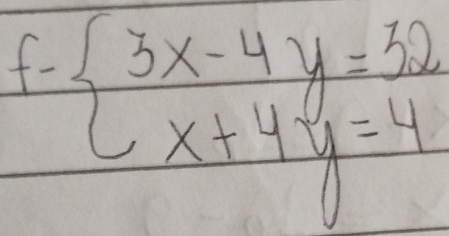 f- { 3x - 4y = 32
x + 4y = 4